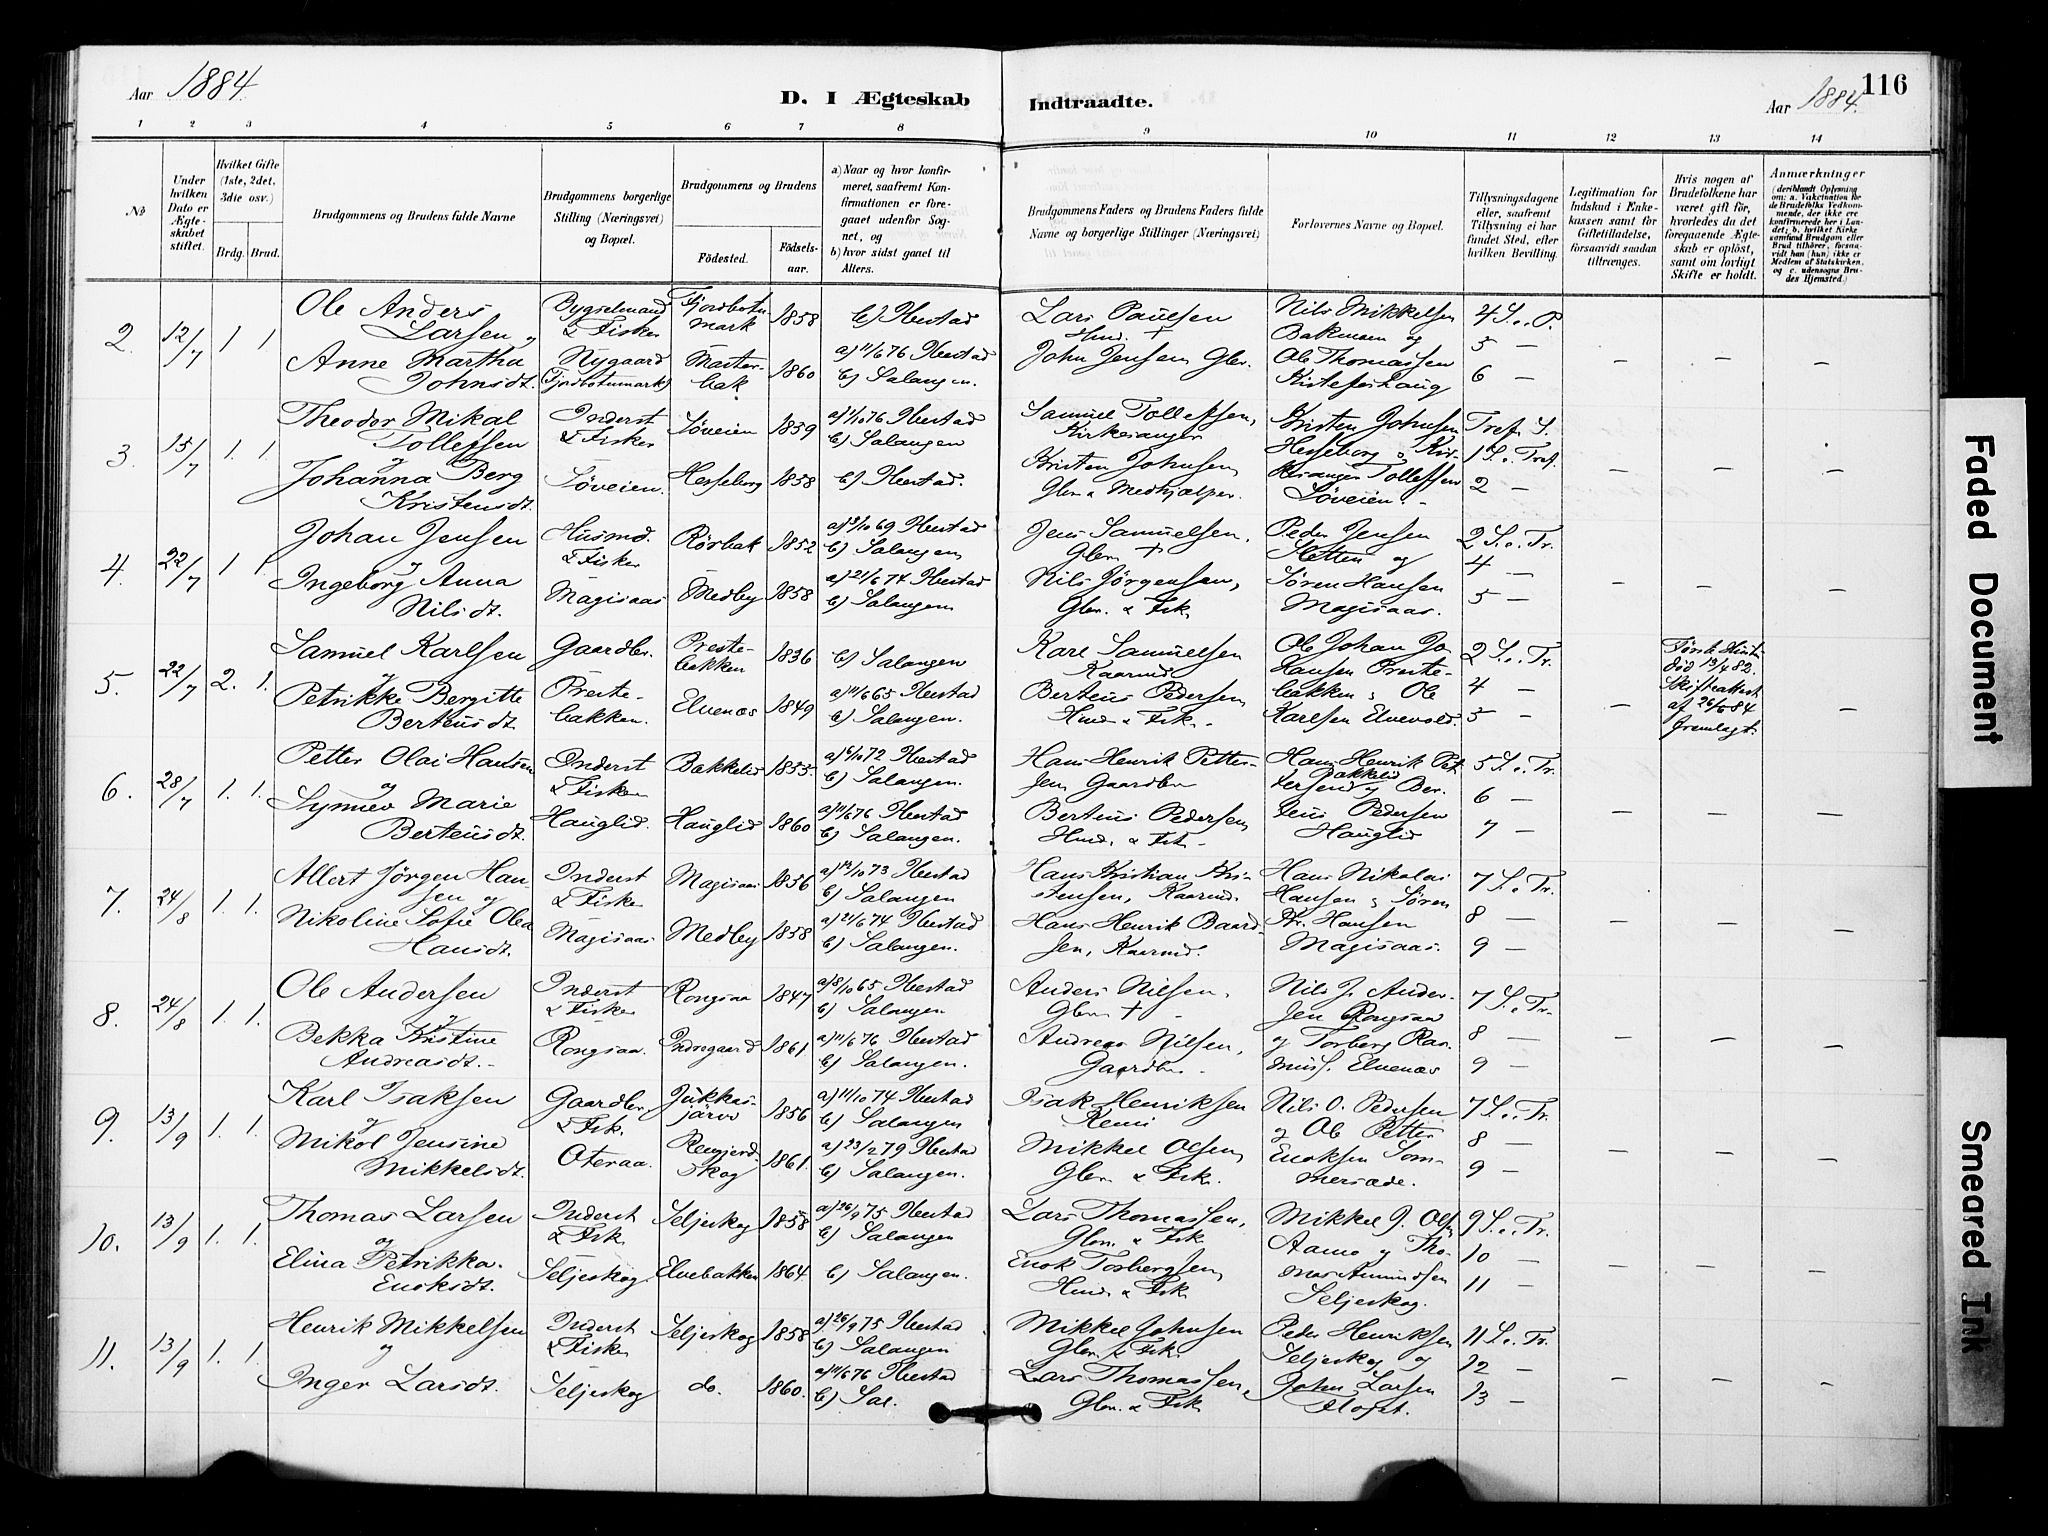 Aar 1884
D. I Ægteskab Indtraadte.
Aar 1884.
116
1 2 3 4 5 6 7 8 9 10 11 12 13 14
No
Under hvilken Dato er Ægteskabet stiftet.
Hvilket Gifte (1ste, 2det, 3die osv.)
Brdg. Brud.
Brudgommens og Brudens fulde Navne
Brudgommens borgerlige Stilling (Næringsvei) og Bopæl.
Brudgommens og Brudens
Födested.
Födsels-aar.
a) Naar og hvor konfirmeret, saafremt Konfirmationen er foregaaet udenfor Sognet, og
b) hvor sidst gaaet til Alters.
Brudgommens Faders og Brudens Faders fulde Navne og borgerlige Stillinger (Næringsvei)
Forlovernes Navne og Bopæl.
Tillysningsdagene eller, saafremt Tillysning ei har fundet Sted, efter hvilken Bevilling.
Legitimation for Indskud i Enkekassen samt for Giftetilladelse, forsaavidt saadan tiltrænges.
Hvis nogen af Brudefolkene har været gift för, hvorledes da det foregaaende Ægteskab er oplöst, samt om lovligt Skifte er holdt.
Anmærkninger
2. 12/7 1 1
Ole Anders Larsen og
Anne Martha Johnsdt.
Bygselmand & Fisker
Nygaard (Fjordbotnmark)
Fjordbotnmark 1858 b) Ibestad
1860 a) 11/6 76 Ibestad
b) Salangen.
Lars Paulsen
Hmd. +
John Jensen, Gbr.
Nils Mikkelsen
Bakmoen og
Ole Thomassen
4 S. e. P.
5 —
6 —
3. 15/7 1. 1
Theodor Mikal Tollefsen
og
Johanna Berg Kristensdt.
Inderst & Fisker
Løveien.
Løveien 1859 a) 1/10 76 Ibestad
b) Salangen
Hesseborg 1858 b) Ibestad.
Samuel Tollefsen,
Kirkesanger
Kristen Johnsen,
Gbr. & Medhjælper.
Kristen Johnsen
Hesseborg & Kirkesanger Tollefsen
Løveien.
Tref. S.
1 S. e. Tref.
2 —
4. 22/7 1 1.
Johan Jensen
og
Ingeborg Anna Nilsdt.
Husmd. & Fisker
Magisaas
Rörbak 1852 a) 3/10 69 Ibestad
b) Salangen
Medby 1858 a) 21/6 74 Ibestad
b) Salangen
Jens Samuelsen.
Gbr. +
Nils Jørgensen,
Gbr. & Fisk.
Peder Jensen
Sletten og
Søren Hansen
Magisaas.
2 S. e. Tr.
4 —
5 —
5. 22/7 2. 1.
Samuel Karlsen
og
Petrikke Bergitte Berteusdt.
Gaardbr.
Prestebakken.
Prestebakken 1836 b) Salangen
Elvenæs 1849 a) 11/6 65 Ibestad
b) Salangen.
Karl Samuelsen
Kaarmd.
Berteus Pedersen,
Hmd. & Fisk.
Ole Johan Johansen Prestebakken & Ole
Karlsen Elvevold.
2 S. e. Tr.
4 —
5 —
død 13/4 82.
Skifteattest
af 26/6 84
fremlagt.
6. 28/7 1. 1.
Petter Olai Hansen
og
Synnev Marie Berteusdt.
Inderst & Fisker
Hauglid.
Bakkelid 1855. a) 6/10 72 Ibestad
b) Salangen.
Hauglid 1860 a) 11/6 76 Ibestad
b) Salangen.
Hans Henrik Pettersen Gaardbr
Berteus Pedersen,
Hmd. & Fisk.
Hans Henrik Pettersen Bakkelid og Berteus Pedersen
Hauglid
5 S. e. Tr.
6 —
7 —
7. 24/8 1. 1.
Albert Jørgen Hansen og
Nikoline Sofie Olea Hansdt.
Inderst & Fisker
Magisaas
Magisaas 1856 a) 12/10 73 Ibestad
b) Salangen
Medby 1858 a) 21/6 74 Ibestad
b) Salangen.
Hans Kristian Kristensen, Kaarmd.
Hans Henrik Baardsen, Kaarmd.
Hans Nikolai
Hansen & Søren
Kr. Hansen
Magisaas.
7 S. e. Tr.
8 —
9 —
8. 24/8 1. 1.
Ole Andersen
og
Bekka Kristine Andreasdt.
Inderst & Fisker
Rongsaa.
Rongsaa 1847 a) 8/10 65 Ibestad
b) Salangen
Indregaard 1861 a) 11/6 76 Ibestad
b) Salangen.
Anders Nilsen,
Gbr. +
Andreas Nilsen,
Gaardbr.
Nils J. Andersen Rongsaa
og Torberg Rasmus. Elvenæs
7 S. e. Tr.
8 —
9 —
9. 13/9 1. 1.
Karl Isaksen
og
Mikol Jensine Mikkelsdt.
Gaardbr & Fisk.
Oteraa.
Jukkasjärvi 1856 a) 11/10 74 Ibestad
b) Salangen
1861. a) 23/2 79 Ibestad
b) Salangen.
Isak Henriksen
Mikkel Olsen,
Gbr. & Fisk.
Nils O. Pedersen
og Ole Petter
Enoksen Sommersæde.
7 S. e. Tr.
8 —
9 —
10. 13/9 1. 1.
Thomas Larsen
og
Elina Petrikka Enoksdt.
Inderst & Fisk.
Seljeskog
Seljeskog 1858 a) 26/9 75 Ibestad
b) Salangen
Elvebakken 1864. b) Salangen.
Lars Thomassen,
Gbr. & Fisk
Enok Torbergsen,
Hmd. & Fisk
Mikkel J. Olsen
Aamo og Thomas Amundsen
Seljeskog.
9 S. e. Tr.
10 —
11 —
11. 13/9 1. 1.
Henrik Mikkelsen
og
Inger Larsdt.
Inderst & Fisker
Seljeskog
Seljeskog 1858 a) 26/9 75 Ibestad
b) Salangen
do. 1860. a) 11/6 76 Ibestad
b) Sal.
Mikkel Johnsen
Gbr. & Fisk.
Lars Thomassen,
Gbr. & Fisk
Peder Henriksen
Seljeskog og
Johan Larsen
11 S. e. Tr.
12 —
13 —
Faded Document
Smeared Ink